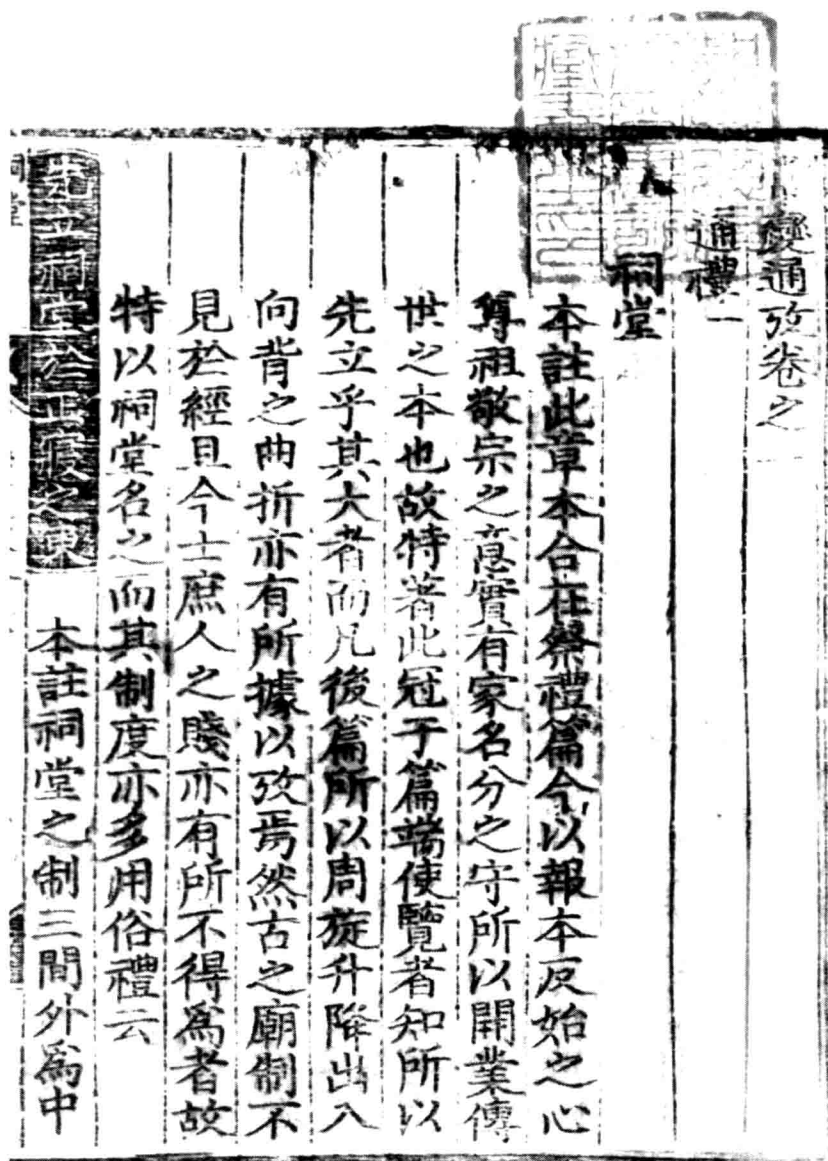 變通攷卷之一
通禮一
祠堂
本註此章本合在祭禮篇今以報本反始之心
尊祖敬宗之意實有家名分之守所以開業傳
世之本也故特著此冠于篇端使覽者知所以
先立乎其大者而凡後篇所以周旋升降出入
向背之曲折亦有所據以攷焉然古之廟制不
見於經且今士庶人之賤亦有所不得爲者故
特以祠堂名之而其制度亦多用俗禮云
先立祠堂於正寢之東 本註祠堂之制三間外爲中
祠堂